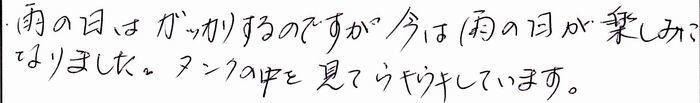 雨の日はガッカリするのですが今は雨の日が楽しみに
なりました。タンクの中を見てウキウキしています。